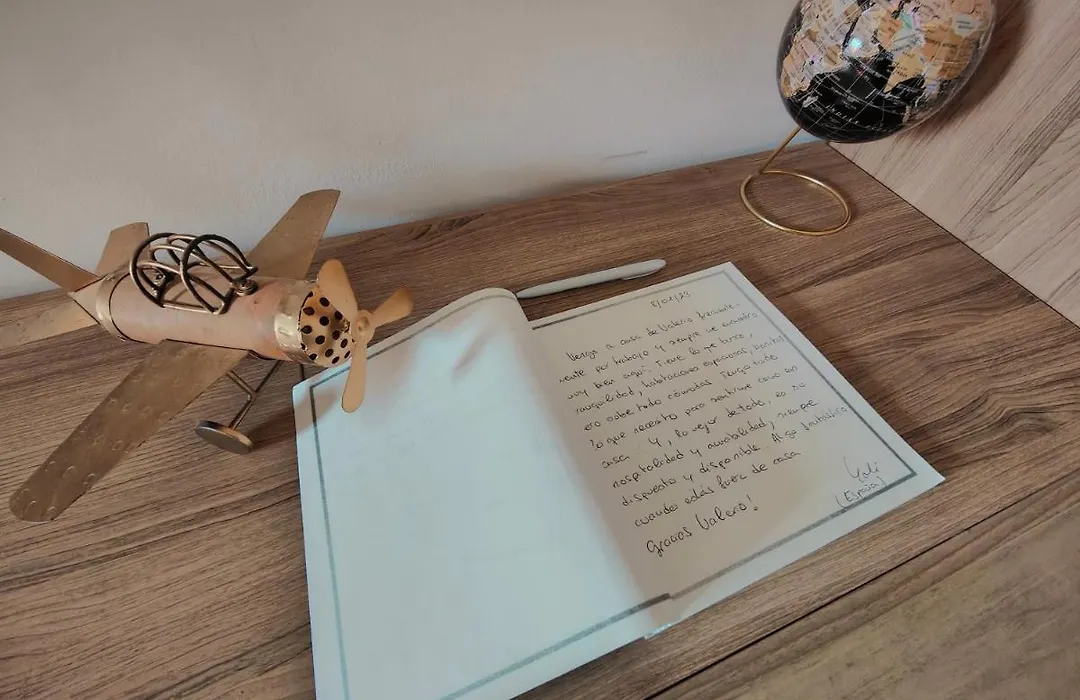 8/01/23
Vengo a casa de Valerio frecuente-
mente por trabajo y siempre me encuentro
muy bien aquí. Tiene lo que busco,
tranquilidad, habitaciones espaciosas, bonitas
pero sobre todo cómodas. Tengo todo
lo que necesito para sentirme como en
casa. Y, lo mejor de todo, es su
hospitalidad y amabilidad, siempre
dispuesto y disponible. Algo fantástico
cuando estás fuera de casa.
Gracias Valerio!
Yoli
(España)